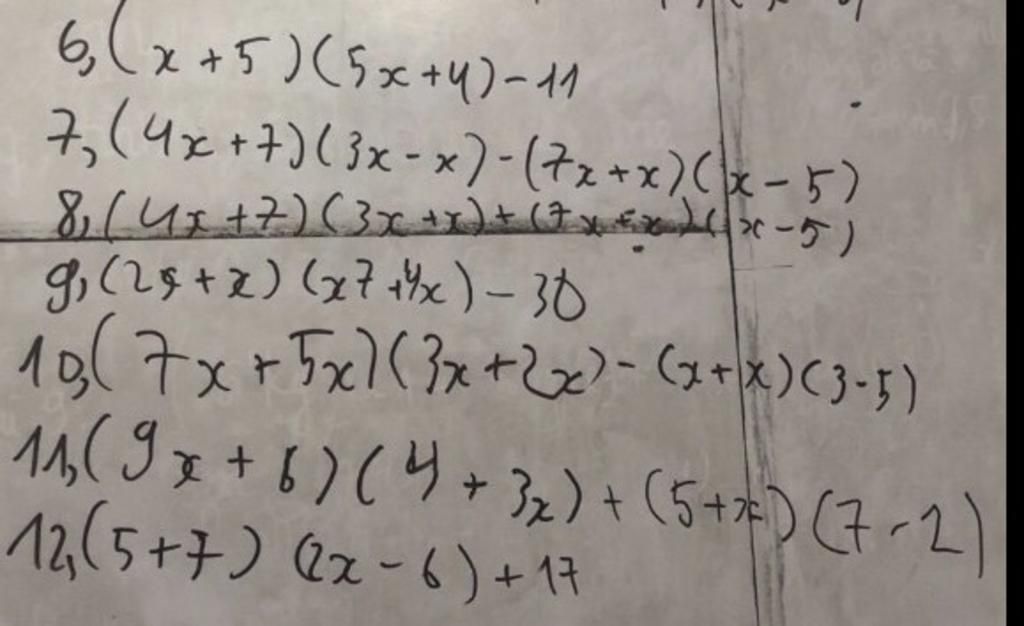 6, (x+5)(5x+4)-11
7, (4x+7)(3x-x)-(7x+x)(x-5)
8, (4x+7)(3x+x)+(7x+x)(x-5)
9, (25+x)(x7+4x)-30
10, (7x+5x)(3x+2x)-(x+x)(3-5)
11, (9x+6)(4+3x)+(5+x)(7-2)
12, (5+7)(2x-6)+17